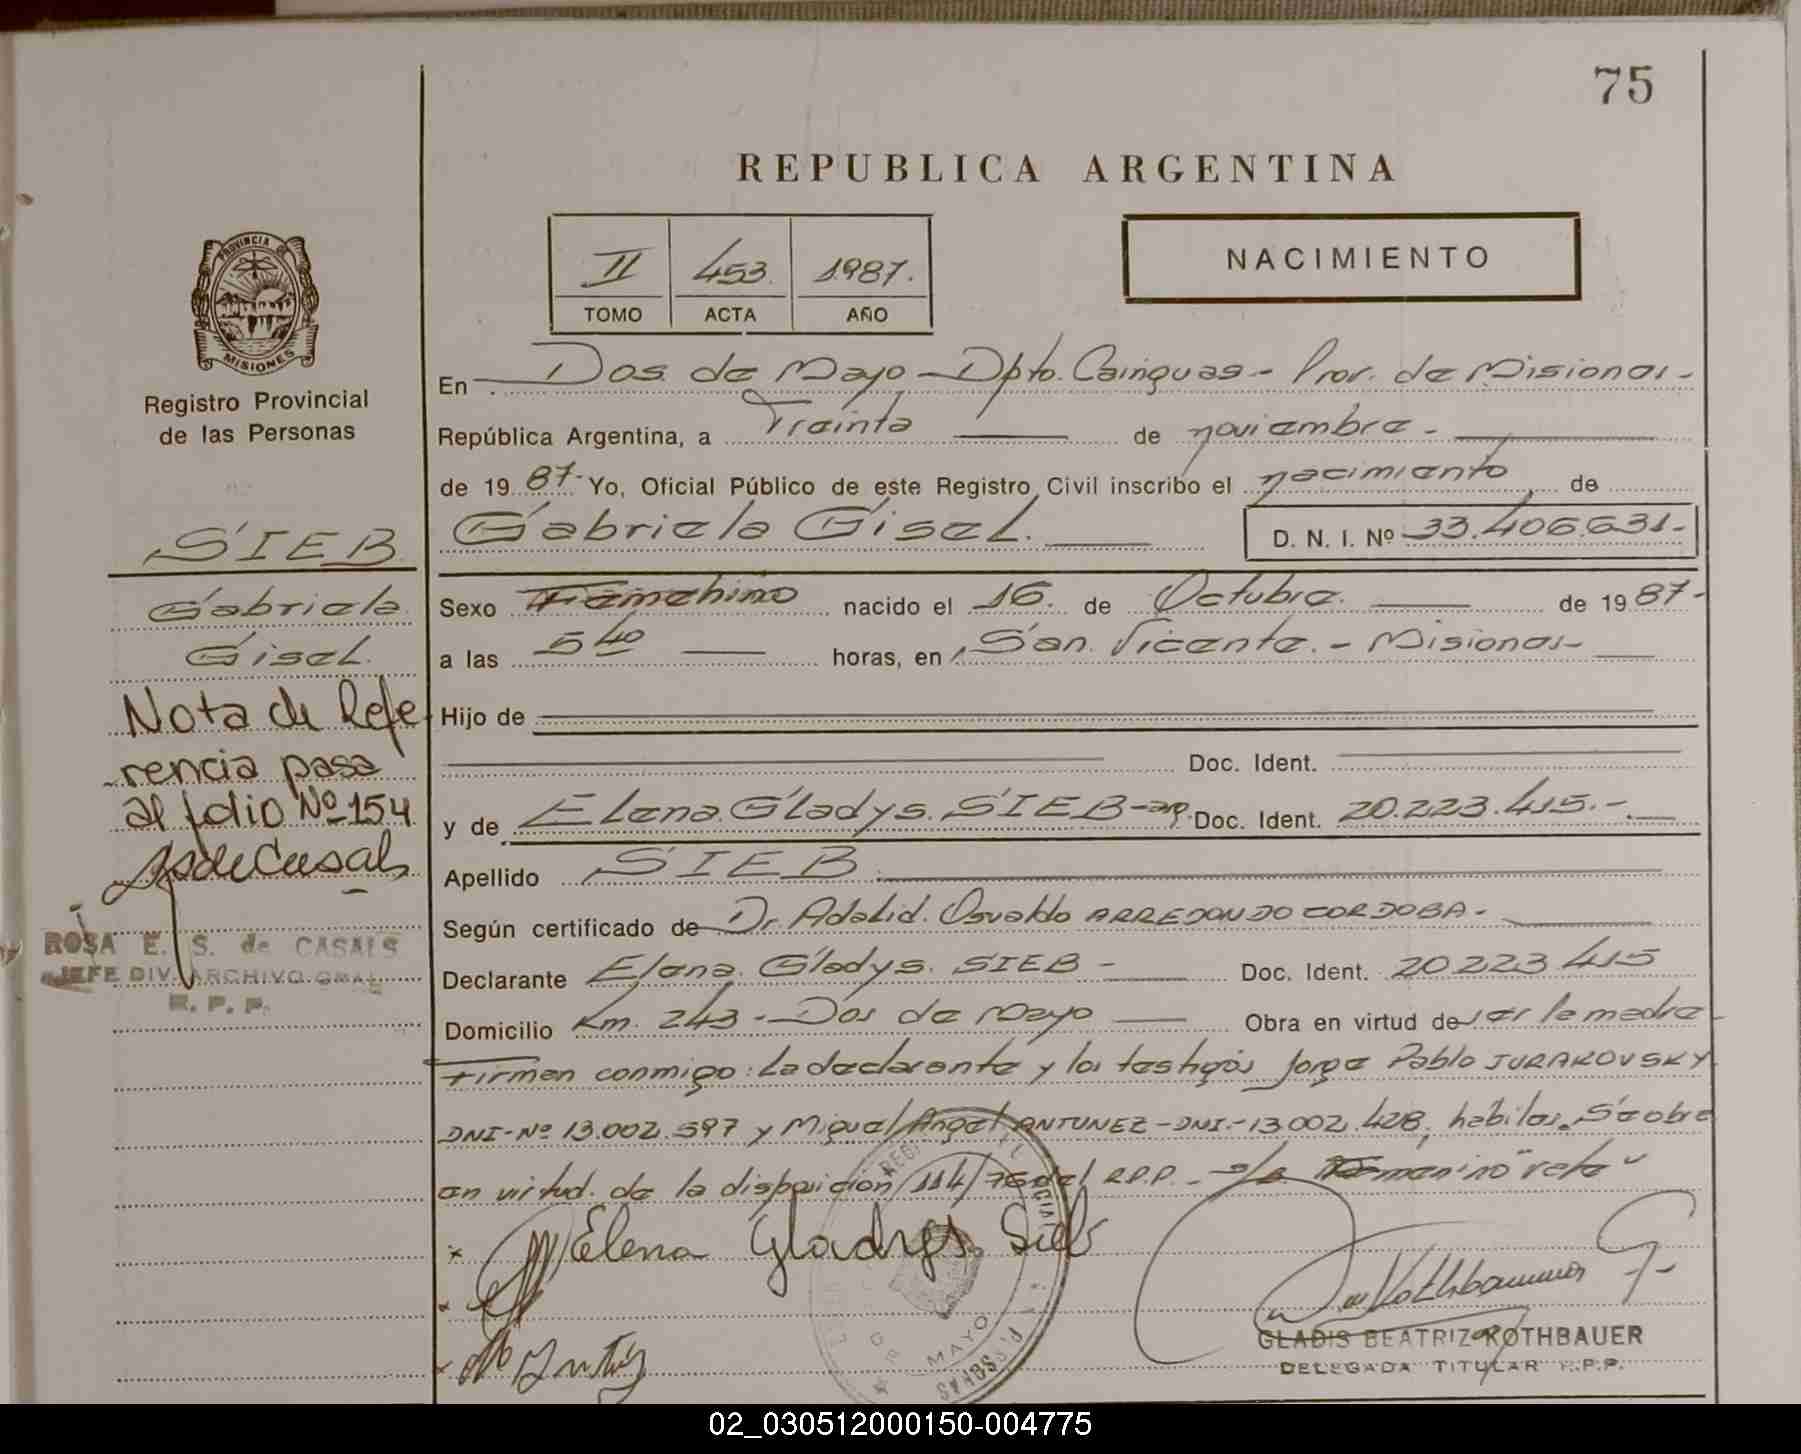 75
REPUBLICA ARGENTINA
II 453. 1987.
TOMO ACTA AÑO
NACIMIENTO
PROVINCIA DE
MISIONES
Registro Provincial
de las Personas
SIEB
Gabriela
Gisel.
Nota de Refe
rencia pasa
al folio Nº 154
ROSA E. S. de CASALS
JEFE DIV. ARCHIVO GRAL
R. P. P.
En Dos de Mayo - Dpto. Cainguas - Prov. de Misiones -
República Argentina, a Treinta de noviembre -
de 19 87- Yo, Oficial Público de este Registro Civil inscribo el nacimiento de
Gabriela Gisel. D. N. I. Nº 33.406.631.-
Sexo nacido el 16. de Octubre. de 19 87-
a las 5 40 horas, en San Vicente. - Misiones -
Hijo de
Doc. Ident.
y de Elena Gladys. SIEB Doc. Ident. 20.223.415.-
Apellido SIEB
Según certificado de Dr. Adalid. Osvaldo ARREDONDO CORDOBA -
Declarante Elena. Gladys. SIEB - Doc. Ident. 20 223 415
Domicilio Km. 243 - Dos de Mayo Obra en virtud de ser la madre
Firman conmigo: La declarante y los testigos Jorge Pablo JURAKOVSKY
DNI-Nº 13.002.597 y Miguel Angel ANTUNEZ - DNI.- 13.002.428, hábiles. Se obra
en virtud. de la disposición 114/76 del R.P.P. - s/r Femenino "vale"
Elena Gladys Sieb
MAYO
GLADIS BEATRIZ ROTHBAUER
DELEGADA TITULAR R.P.P.
02_030512000150-004775